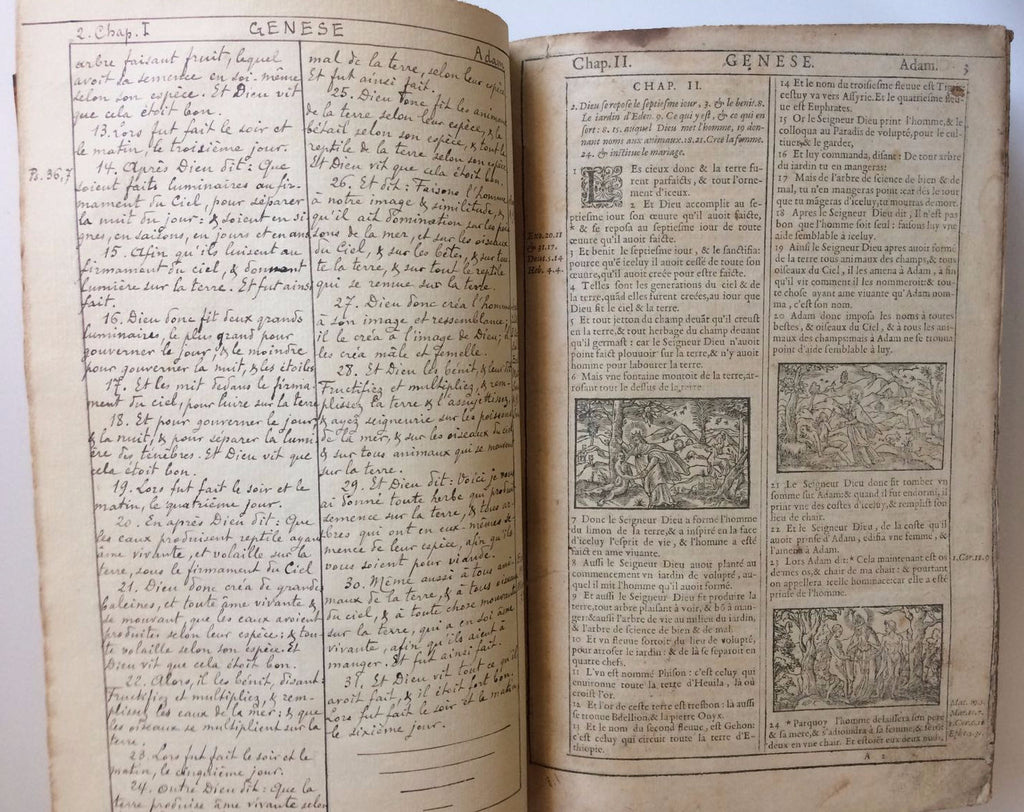 2. Chap. I GENESE
Adam
arbre faisant fruit, lequel
avoit sa semence en soi-même
selon son espèce. Et Dieu vit
que cela étoit bon.
13. Lors fut fait le soir et
le matin, le troisième jour.
14. Après Dieu dit: Que
soient faits luminaires au fir-
mament du Ciel, pour séparer
la nuit du jour: & soient en si-
gnes, en saisons, en jours et en ans
15. Afin qu'ils luisent au
firmament du ciel, & donnent
lumière sur la terre. Et fut ainsi
fait.
16. Dieu donc fit deux grands
luminaires, le plus grand pour
gouverner le jour, & le moindre
pour gouverner la nuit, & les étoiles
17. Et les mit dedans le firma-
ment du ciel, pour luire sur la terre
18. Et pour gouverner le jour
& la nuit, & pour séparer la lumi
ère des ténèbres. Et Dieu vit que
cela étoit bon.
19. Lors fut fait le soir et le
matin, le quatrième jour.
20. En après Dieu dit: Que
les eaux produisent reptile ayant
âme vivante, et volaille sur la
terre, sous le firmament du Ciel
21. Dieu donc créa de grandes
baleines, et toute âme vivante &
se mouvant, que les eaux avoient
produites selon leur espèce: & tou-
te volaille selon son espèce. Et
Dieu vit que cela étoit bon.
22. Alors, il les bénit, disant:
Fructifiez et multipliez, & rem-
plissez les eaux de la mer: & que
les oiseaux se multiplient sur la
terre.
23. Lors fut fait le soir et le
matin, le cinquième jour.
24. Outre Dieu dit: Que la
terre produise âme vivante selon
Ps. 36, 7
mal de la terre, selon leur espèce
Et fut ainsi fait.
25. Dieu donc fit les animaux
de la terre selon leur espèce, & le
bétail selon son espèce, & tout le
reptile de la terre selon son espèce
Et Dieu vit que cela étoit bon.
26. Et dit: Faisons l'homme
à notre image & similitude, &
qu'il ait domination sur les pois-
sons de la mer, et sur les oiseaux
du Ciel & sur les bêtes, & sur tou
te la terre, & sur tout le reptile
qui se remue sur la terre.
27. Dieu donc créa l'homme
à son image et ressemblance;
il le créa à l'image de Dieu; il
les créa mâle et femelle.
28. Et Dieu les bénit, & leur dit
Fructifiez et multipliez, & rem-
plissez la terre & l'assujettissez,
& ayez seigneurie sur les poissons
de la mer, & sur les oiseaux du ciel
& sur tous animaux qui se meuvent
sur la terre.
29. Et Dieu dit: Voici je vous
ai donné toute herbe qui produit
semence sur la terre, & tous ar-
bres qui ont en eux-mêmes se-
mence de leur espèce, afin qu'ils
vous soient pour viande.
30. Même aussi à tous ani-
maux de la terre, & à tous oiseaux
du ciel, & à toute chose mouvante
sur la terre, qui a en soi âme
vivante, afin qu'ils aient à
manger. Et fut ainsi fait.
31. Et Dieu vit tout ce qu'il
avoit fait, & il étoit fort bon.
Lors fut fait le soir et le matin
le sixième jour.
Chap. II. GENESE. Adam. 3
CHAP. II.
2. Dieu se repose le septiesme iour, 3. & le benit. 8.
Le iardin d'Eden. 9. Ce qui y est, & ce qui en
sort: 8. 15. auquel Dieu met l'homme, 19 don-
nant noms aux animaux. 18. 21. Cree la femme.
24. & institue le mariage.
LEs cieux donc & la terre fu-
rent parfaicts, & tout l'orne-
ment d'iceux.
2 Et Dieu accomplit au se-
ptiesme iour son œuure qu'il auoit faicte,
* & se reposa au septiesme iour de toute
œuure qu'il auoit faicte.
3 Et benit le septiesme iour, & le sanctifia:
pource qu'é iceluy il auoit cessé de toute son
œuure, qu'il auoit creée pour estre faicte.
4 Telles sont les generations du ciel & de
la terre, quád elles furent creées, au iour que
Dieu fit le ciel & la terre.
5 Et tout jetton du champ deuãt qu'il creust
en la terre, & tout herbage du champ deuant
qu'il germast: car le Seigneur Dieu n'auoit
point faict plouuoir sur la terre, & n'y auoit
homme pour labourer la terre.
6 Mais vne fontaine montoit de la terre, ar-
rosant tout le dessus de la terre.
7 Donc le Seigneur Dieu a formé l'homme
du limon de la terre, & a inspiré en la face
d'iceluy l'esprit de vie, & l'homme a esté
faict en ame viuante.
8 Aussi le Seigneur Dieu auoit planté au
commencement vn iardin de volupté, au-
quel il mit l'homme qu'il auoit formé.
9 Et aussi le Seigneur Dieu fit produire la
terre, tout arbre plaisant à voir, & bõ à man-
ger: & aussi l'arbre de vie au milieu du iardin,
& l'arbre de science de bien & de mal.
10 Et vn fleuue sortoit du lieu de volupté,
pour arroser le iardin: & de là se partoit en
quatre chefs.
11 L'vn est nommé Phison: c'est celuy qui
enuironne toute la terre d'Heuila, là où
croist l'or.
12 Et l'or de ceste terre est tresbon: là aussi
se trouue Bdellion, & la pierre Onyx.
13 Et le nom du second fleuue, est Gehon:
c'est celuy qui circuit toute la terre d'E-
thiopie.
Exo. 20. 11
& 31. 17.
Deut. 5. 14
Heb. 4. 4.
14 Et le nom du troisiesme fleuue est
cestuy va vers Assyrie. Et le quatriesme fle-
uue est Euphrates.
15 Or le Seigneur Dieu print l'homme, & le
colloqua au Paradis de volupté, pour le cul-
tiuer, & le garder,
16 Et luy commanda, disant: De tout arbre
du iardin tu en mangeras:
17 Mais de l'arbre de science de bien & de
mal, tu n'en mangeras point: car dés le iour
que tu mãgeras d'iceluy, tu mourras de mort.
18 Apres le Seigneur Dieu dit, Il n'est pas
bon que l'homme soit seul: faisons luy vne
aide semblable à iceluy.
19 Ainsi le Seigneur Dieu apres auoir formé
de la terre tous animaux des champs, & tous
oiseaux du Ciel, il les amena à Adam, à fin
qu'il vit comment il les nommeroit: & tou-
te chose ayant ame viuante qu'Adam nom-
ma, c'est son nom.
20 Adam donc imposa les noms à toutes
bestes, & oiseaux du Ciel, & à tous les ani-
maux des champs: mais à Adam ne se trouua
point d'aide semblable à luy.
21 Le Seigneur Dieu donc fit tomber vn
somme sur Adam: & quand il fut endormi, il
print vne des costes d'iceluy, & remplist son
lieu de chair.
22 Et le Seigneur Dieu, de la coste qu'il
auoit prinse d'Adam, edifia vne femme, &
l'amena à Adam.
23 Lors Adam dit: * Cela maintenant est os
de mes os, & chair de ma chair: & pourtant
on appellera icelle hommace: car elle a esté
prinse de l'homme.
24 * Parquoy l'homme delaissera son pere
& sa mere, & s'adioindra à sa femme, & seront
deux en vne chair. Et estoiét eux deux nuds,
1. Cor. 11. 9
Mat. 19. 5.
Mar. 10. 7.
1. Cor. 6. 16
Ephe. 5. 31.
A 2